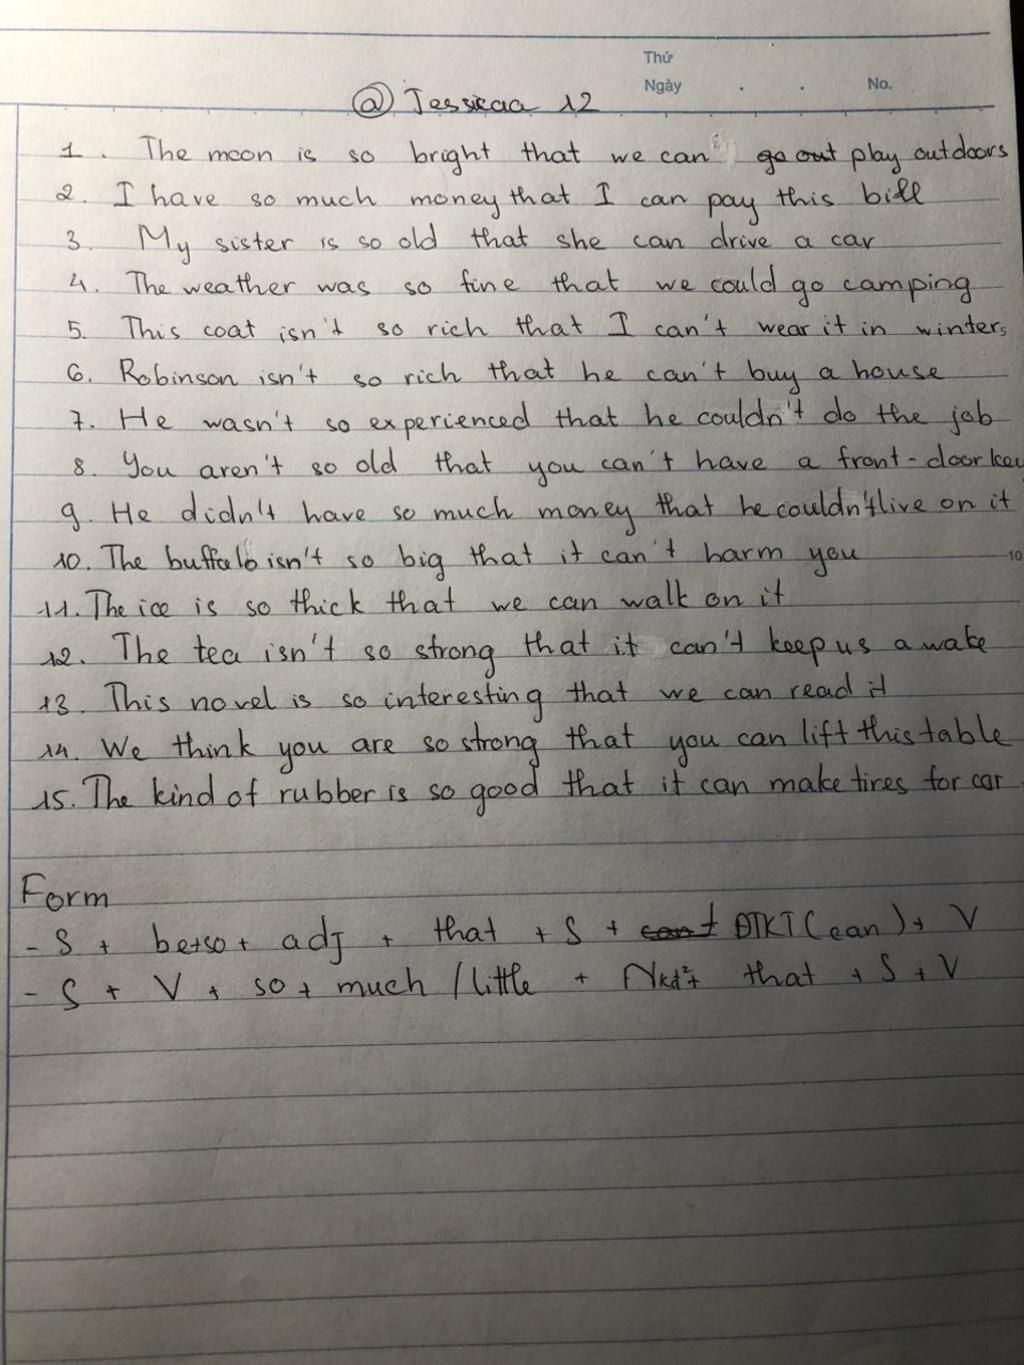 Thứ
Ngày . . No.
@ Jessicaa 12
1. The moon is so bright that we can go out play outdoors
2. I have so much money that I can pay this bill
3. My sister is so old that she can drive a car
4. The weather was so fine that we could go camping
5. This coat isn't so rich that I can't wear it in winters
6. Robinson isn't so rich that he can't buy a house
7. He wasn't so experienced that he couldn't do the job
8. You aren't so old that you can't have a front-door key
9. He didn't have so much money that he couldn't live on it
10. The buffalo isn't so big that it can't harm you
10
11. The ice is so thick that we can walk on it
12. The tea isn't so strong that it can't keep us awake
13. This novel is so interesting that we can read it
14. We think you are so strong that you can lift this table
15. The kind of rubber is so good that it can make tires for car
Form
- S + be+so+ adj + that + S + can't ĐTKT (can) + V
- S + V + so + much / little + Nkđ²+ that + S + V